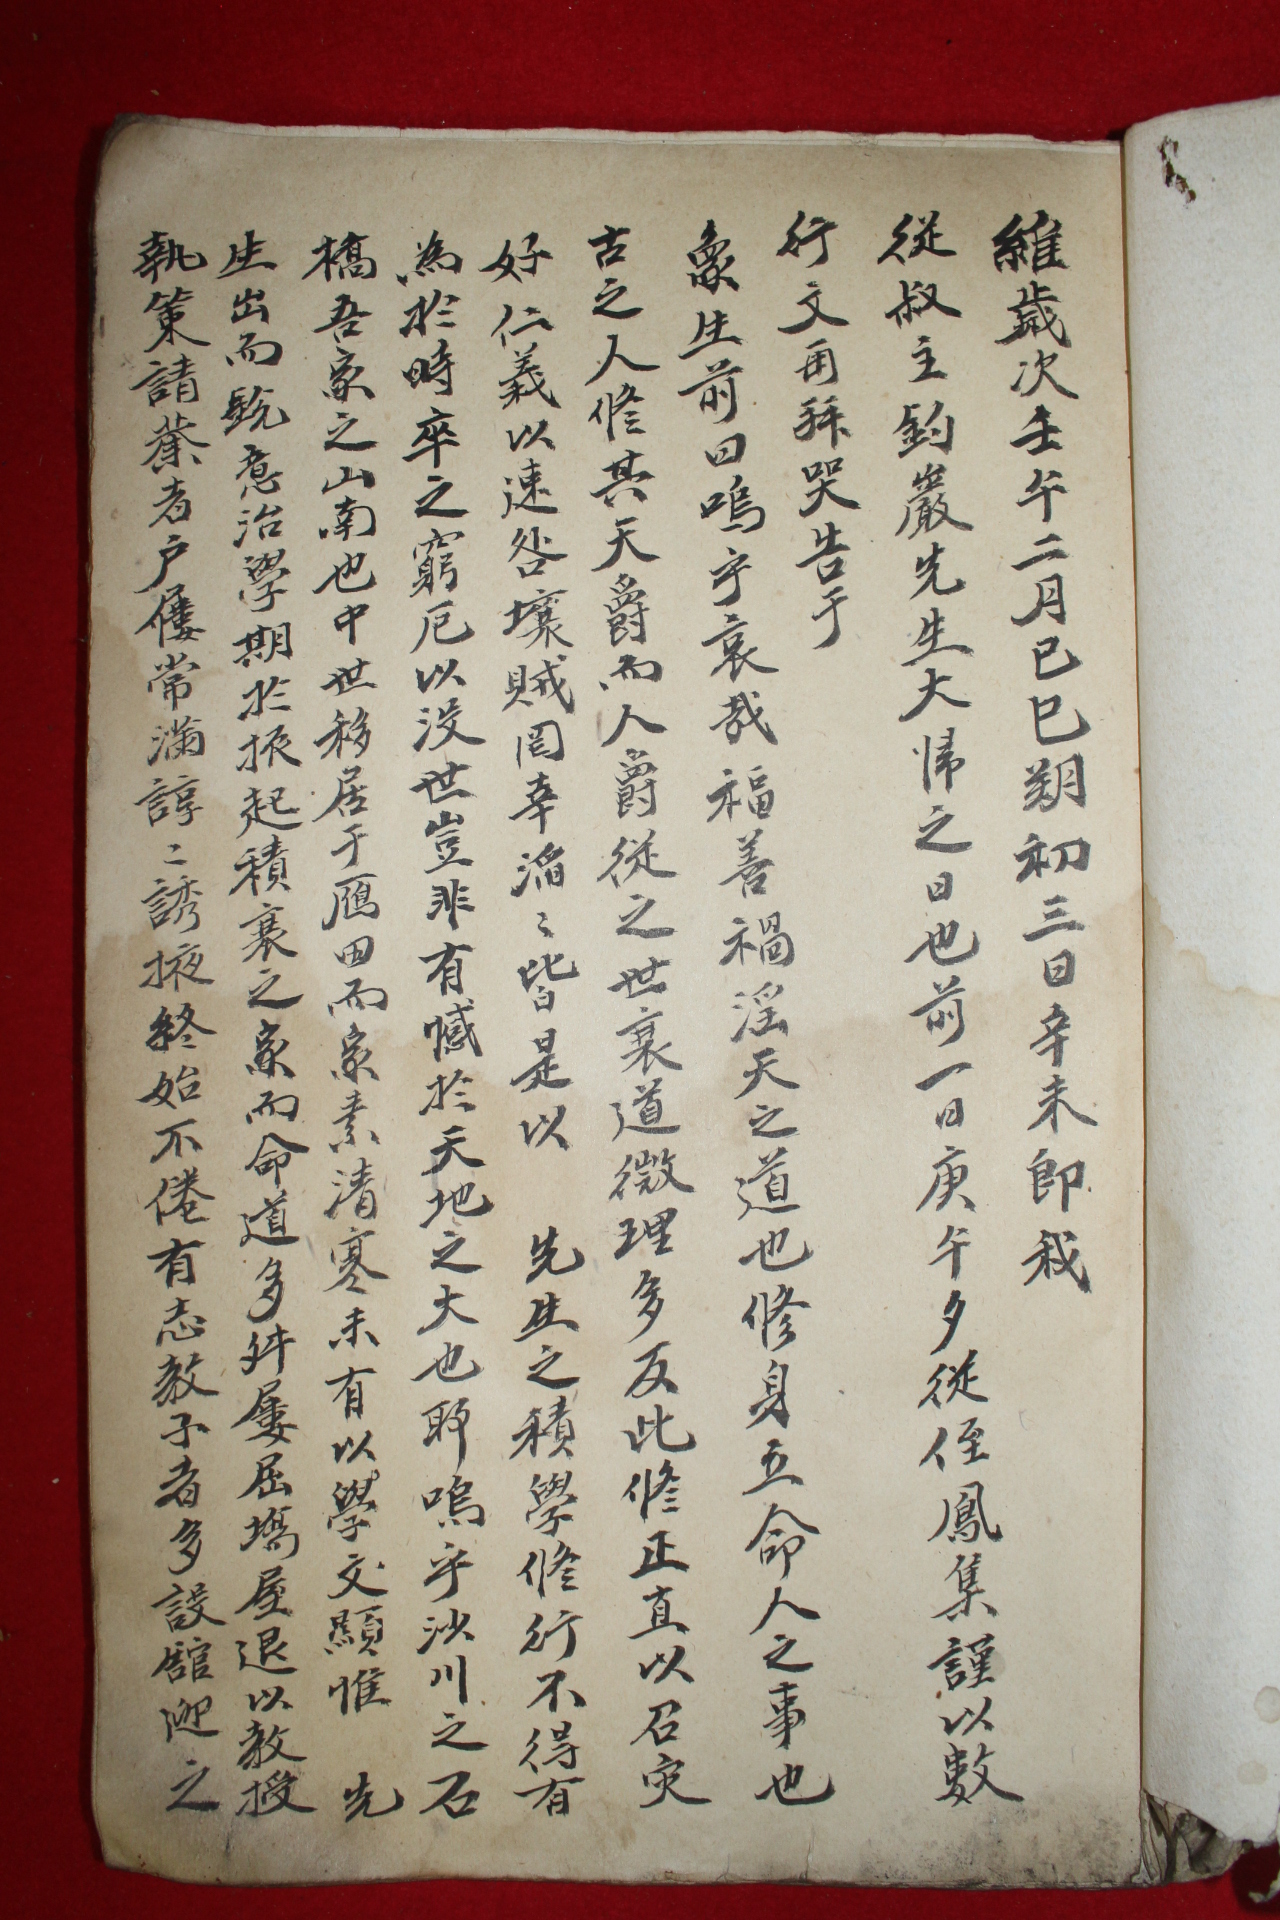 維歲次壬午二月己巳朔初三日辛未即我
從叔主鈞巖先生大歸之日也前一日庚午夕從侄鳳集謹以數
行文再拜哭告于
象生前曰嗚乎哀哉福善禍淫天之道也修身立命人之事也
古之人修其天爵而人爵從之世衰道微理多反此修正直以召灾
好仁義以速咎壞賊罔幸滔〻皆是以 先生之積學修行不得有
為於時卒之窮厄以沒世豈非有憾於天地之大也耶嗚乎沙川之石
橋吾家之山南也中世移居于鴈田而家素清寒未有以學文顯惟 先
生出而銳意治學期於振起積衰之家而命道多舛屢屈場屋退以教授
執策請業者戶屨常滿諄〻誘掖終始不倦有志教子者多設館迎之